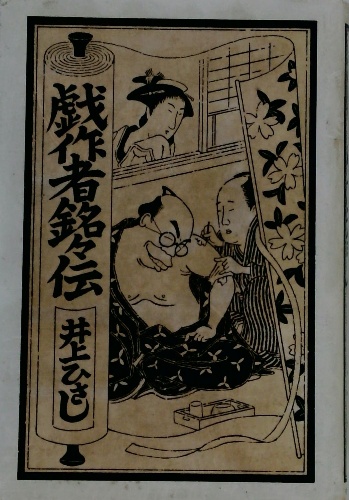 戯作者銘々伝
井上ひさし